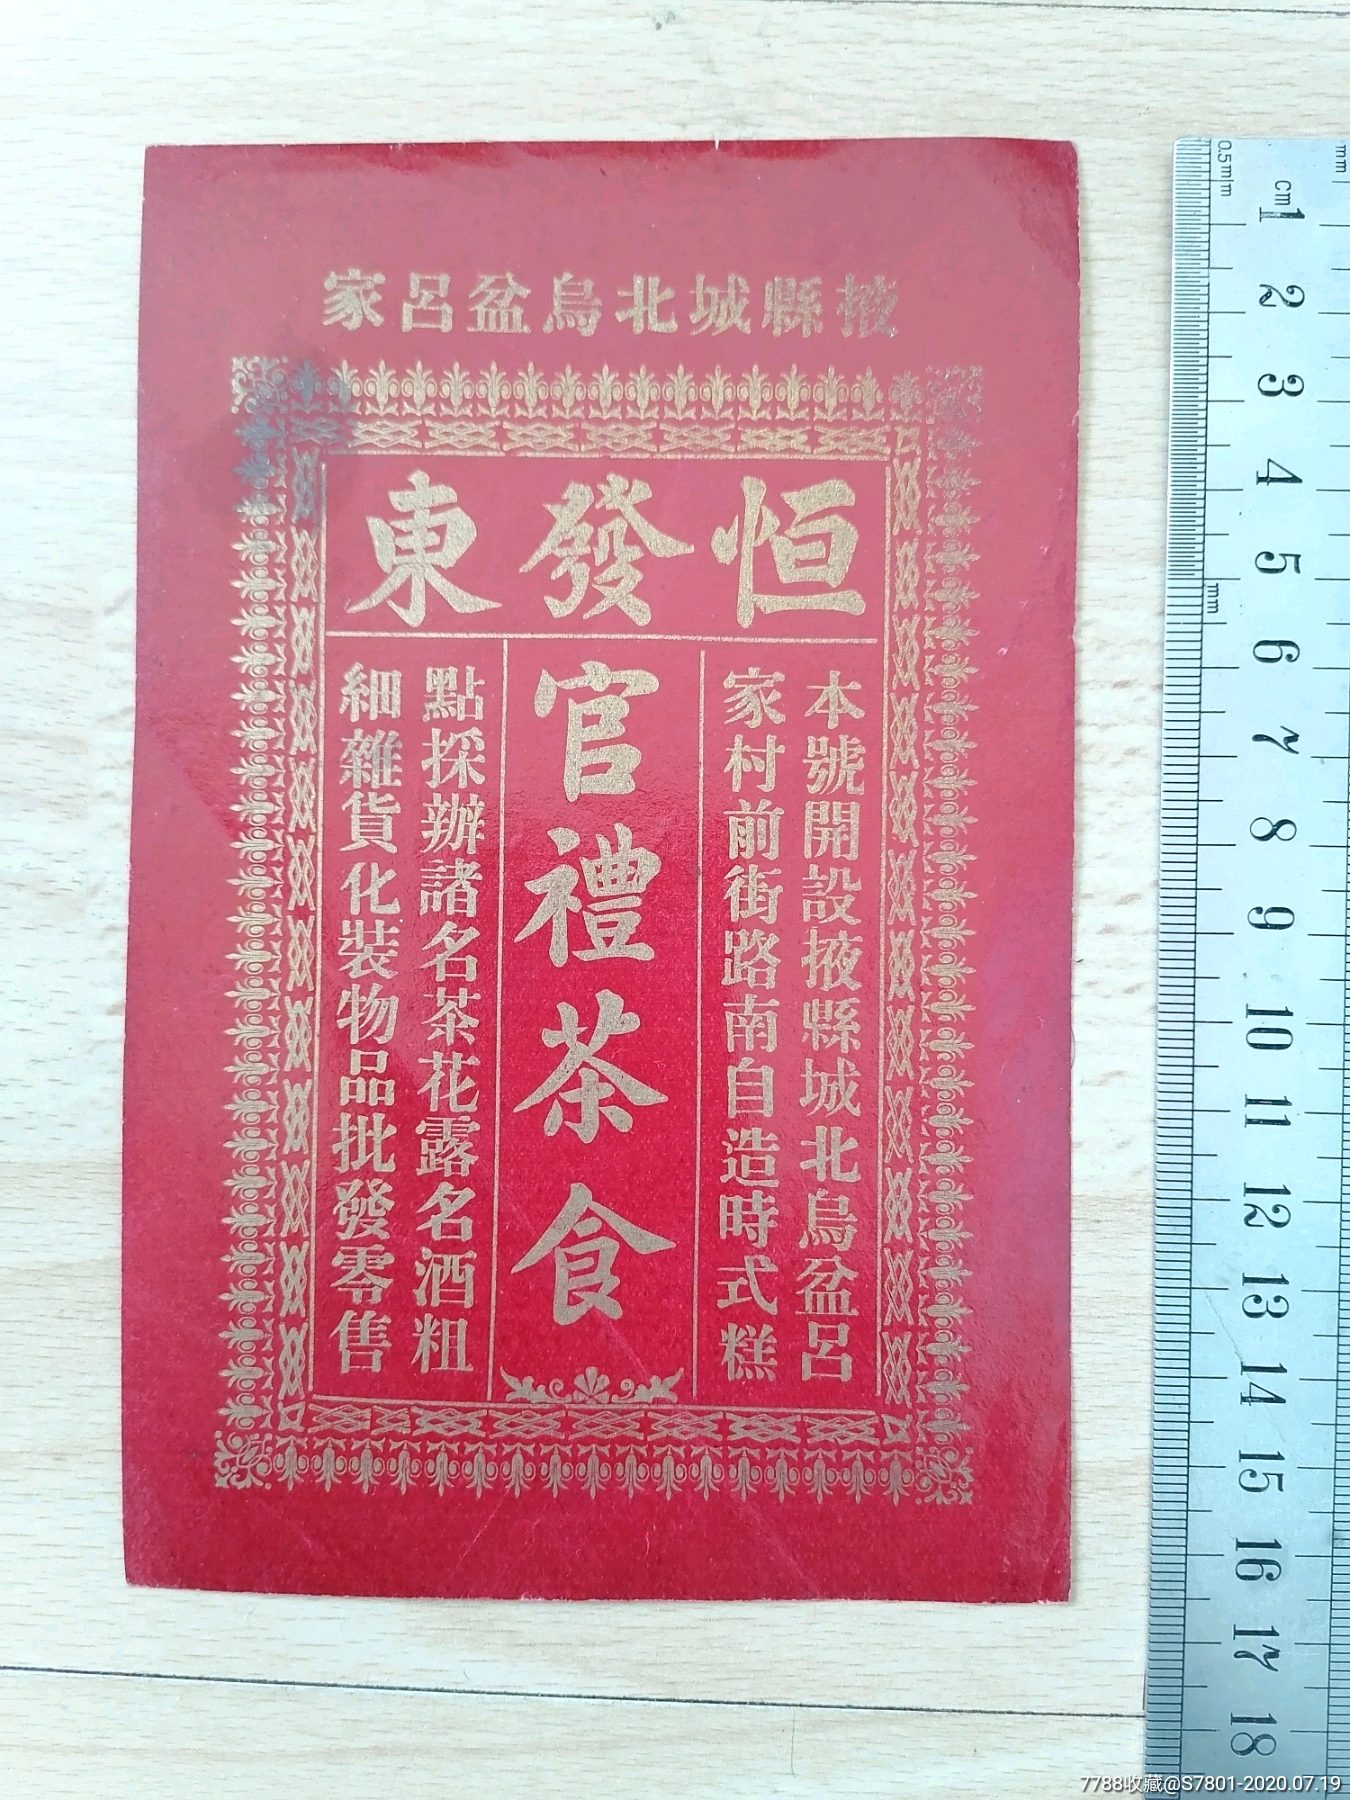 掖縣城北烏盆呂家
恒發東
本號開設掖縣城北烏盆呂
家村前街路南自造時式糕
官禮茶食
點採辦諸名茶花露名酒粗
細雜貨化裝物品批發零售
0.5mm
mm
cm
1
2
3
4
5
6
7
8
9
10
11
12
13
14
15
16
17
18
mm
7788收藏@S7801-2020.07.19